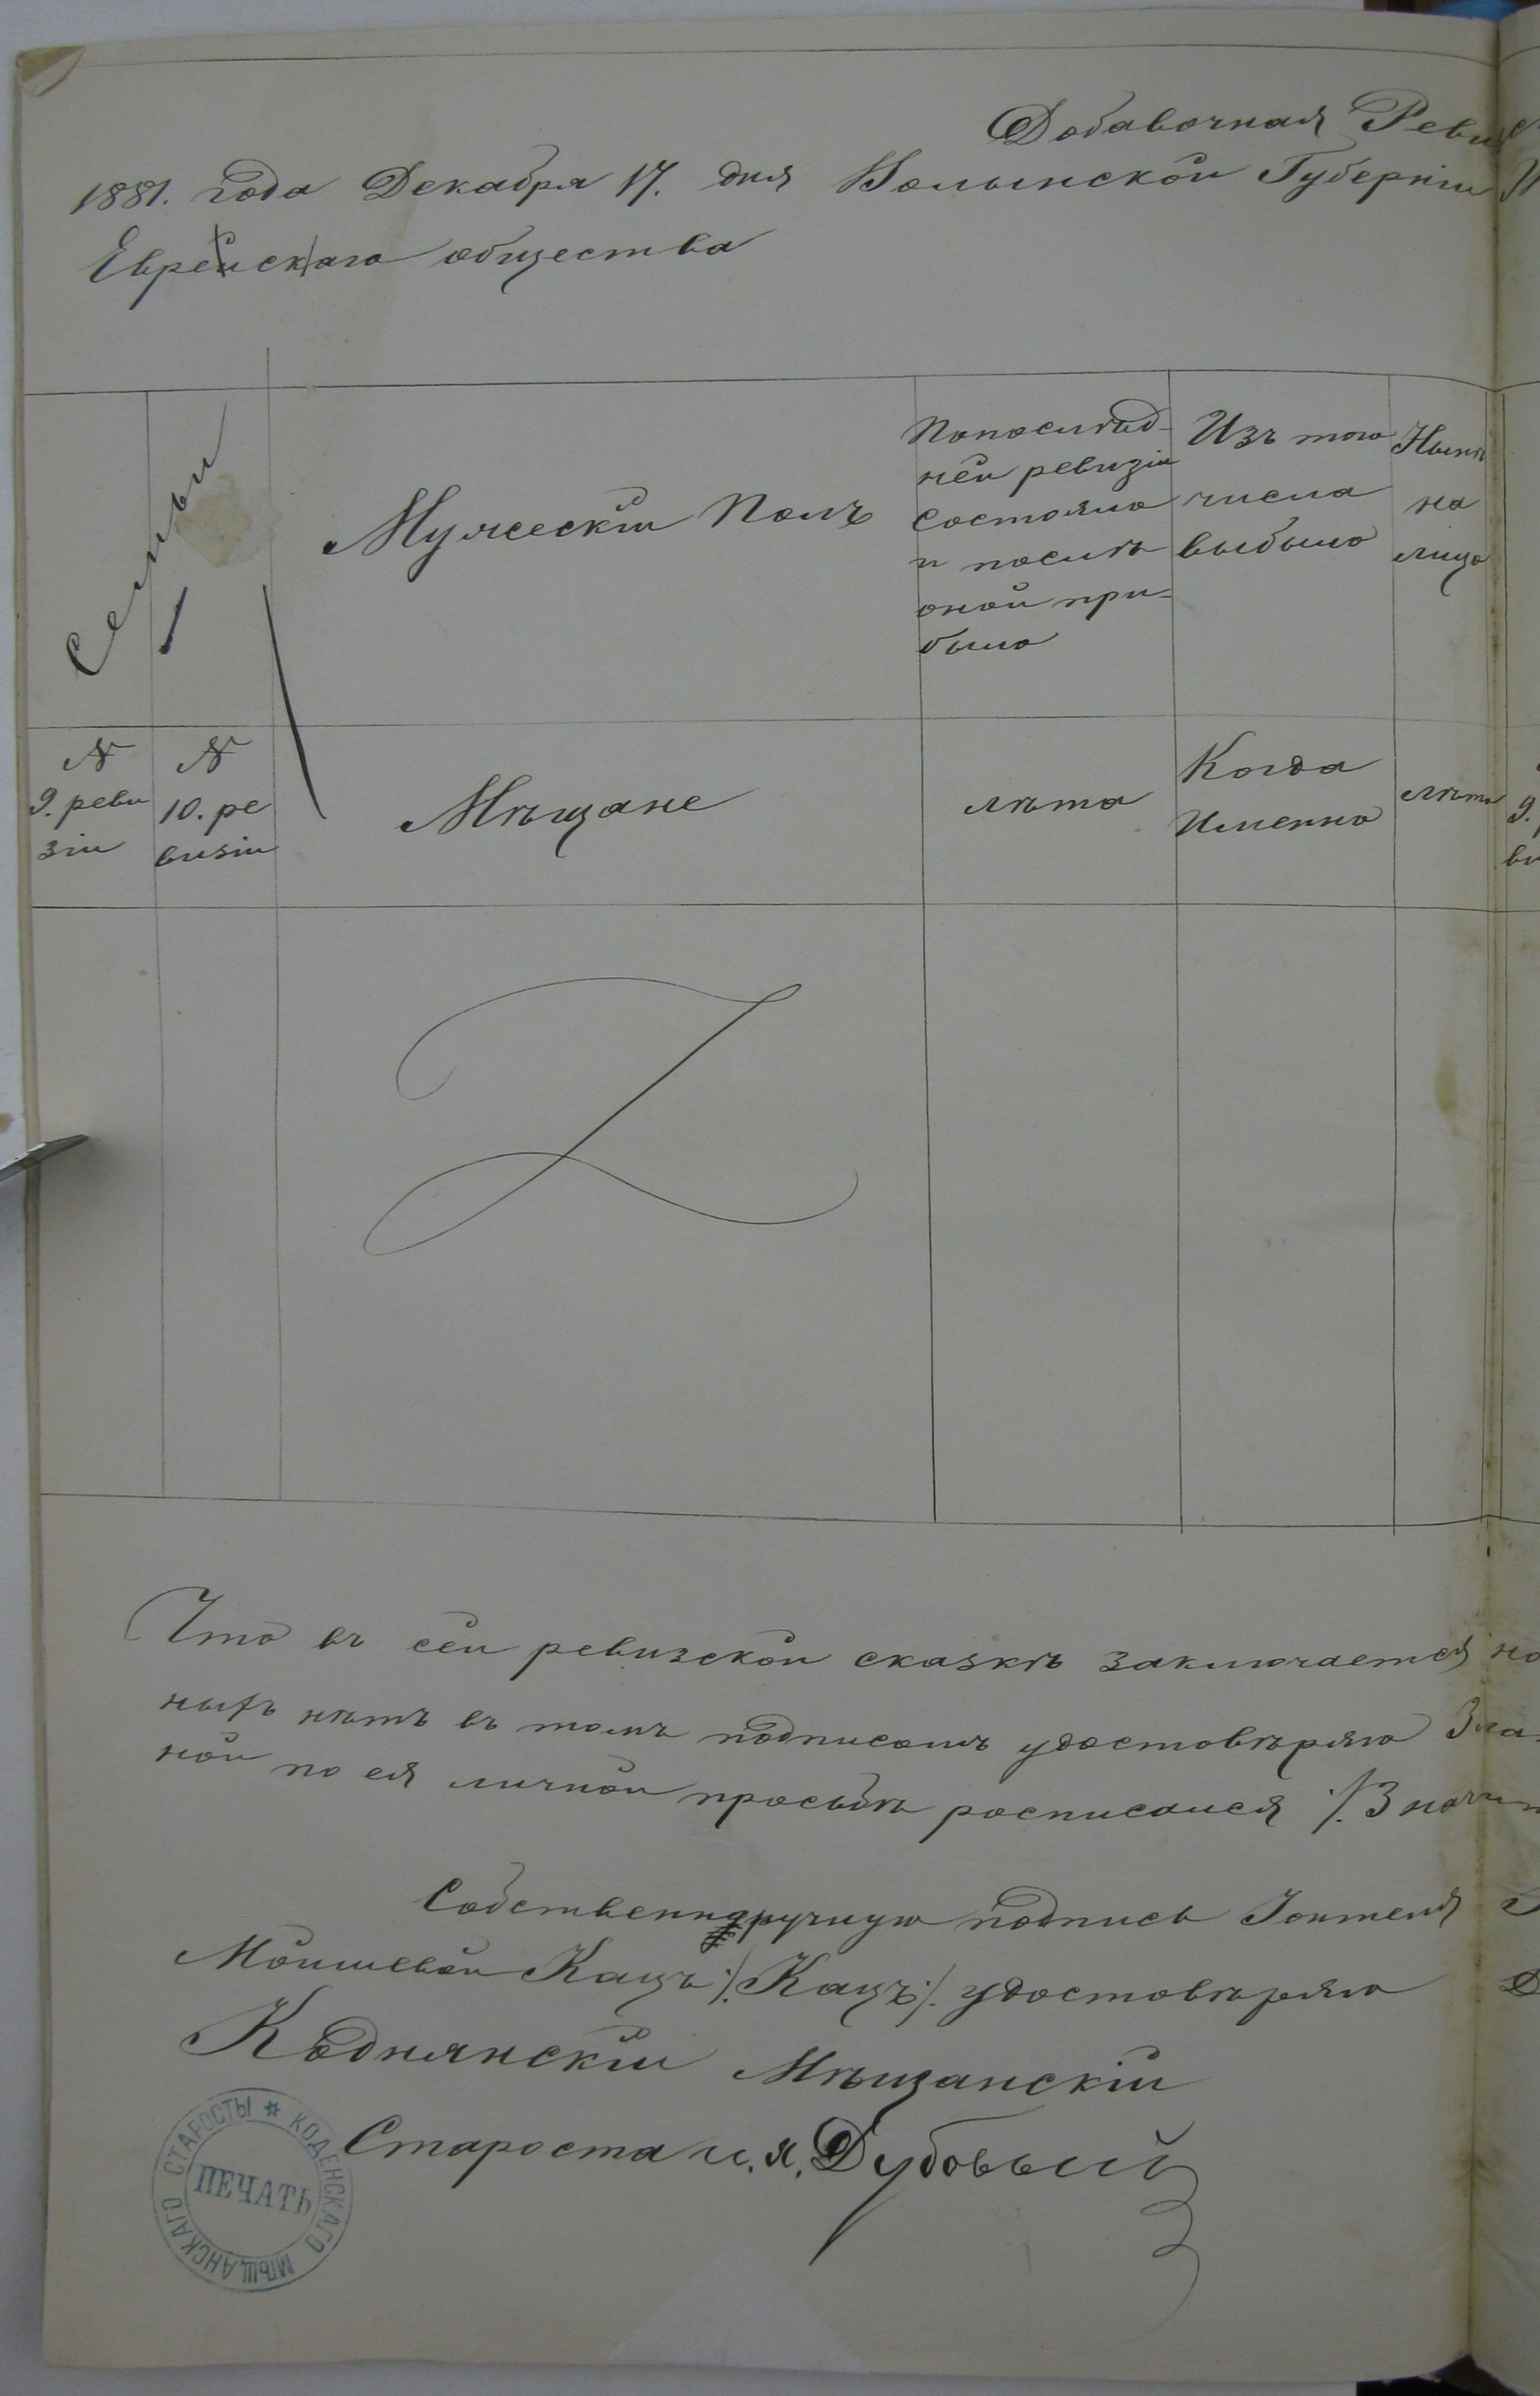 Добавочная Ревиз
1881. года Декабря 17. дня Волынской Губерніи
Еврейскаго общества
Семьи
Мужескій Полъ
Попослѣд-
ней ревизіи
состояло
и послѣ
оной при-
было
Изъ того
числа
выбыло
Нынѣ
на
лицо
№
9. реви
зіи
№
10. ре
визіи
Мѣщане
лѣта
Когда
Именно
лѣта
9.
ви
Что въ сей ревизской сказкѣ заключается
ныхъ нѣтъ въ томъ подписомъ удостовѣряю
ной по ея личной просьбѣ росписался ./.
Собственноручную подпись Жителя
Мойшевой Кацъ ./. Кацъ ./. удостовѣряю
Коднянскій Мѣщанскій
Староста и. я. Дубовый
ПЕЧАТЬ
КОДЕНСКАГО МѢЩАНСКАГО СТАРОСТЫ